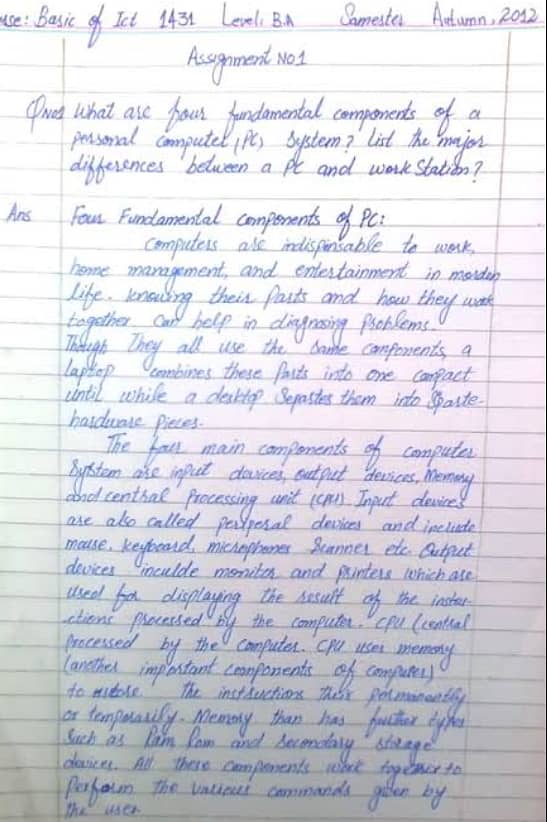 use: Basic of Ict 1431 Level: B.A Samester Autumn, 2012
Assignment No 1
Q No1 What are four fundamental components of a
personal computer (PC) System? List the major
differences between a PC and work Station?
Ans Four Fundamental components of PC:
Computers are indispensable to work,
home management, and entertainment in
life. knowing their Parts and how they work
together can help in diagnosing Problems.
Though They all use the Same components, a
laptop combines these Parts into one compact
until while a desktop Sepastes them into
hardware Pieces.
The four main components of computer
System are input davices, output devices, Memory
and centhal Processing unit (CPU) Input devices
are also called devices and include
mouse, keyboard, microphones Scanner etc. Output
devices inculde monitor and printers which are
used for displaying the result of the instur-
-ctions processed by the computer. CPU (central
Processed by the computer. CPU uses memory
(another important components of computer)
to the instructions permanently
or temporarily. Memory than has further types
Such as Ram Rom and Secondary storage
davices. All these components work together to
Perform the various commands given by
the user